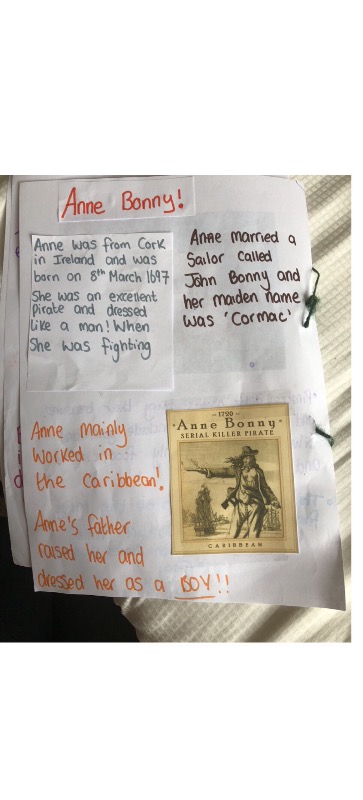 Anne Bonny!
Anne was from Cork
in Ireland and was
born on 8th March 1697
She was an excellent
Pirate and dressed
like a man! When
She was fighting
Anne married a
Sailor called
John Bonny and
her maiden name
was 'Cormac'
Anne mainly
Worked in
the Caribbean!
Anne's father
raised her and
dressed her as a BOY!!
~ 1720 ~
Anne Bonny
SERIAL KILLER PIRATE
CARIBBEAN